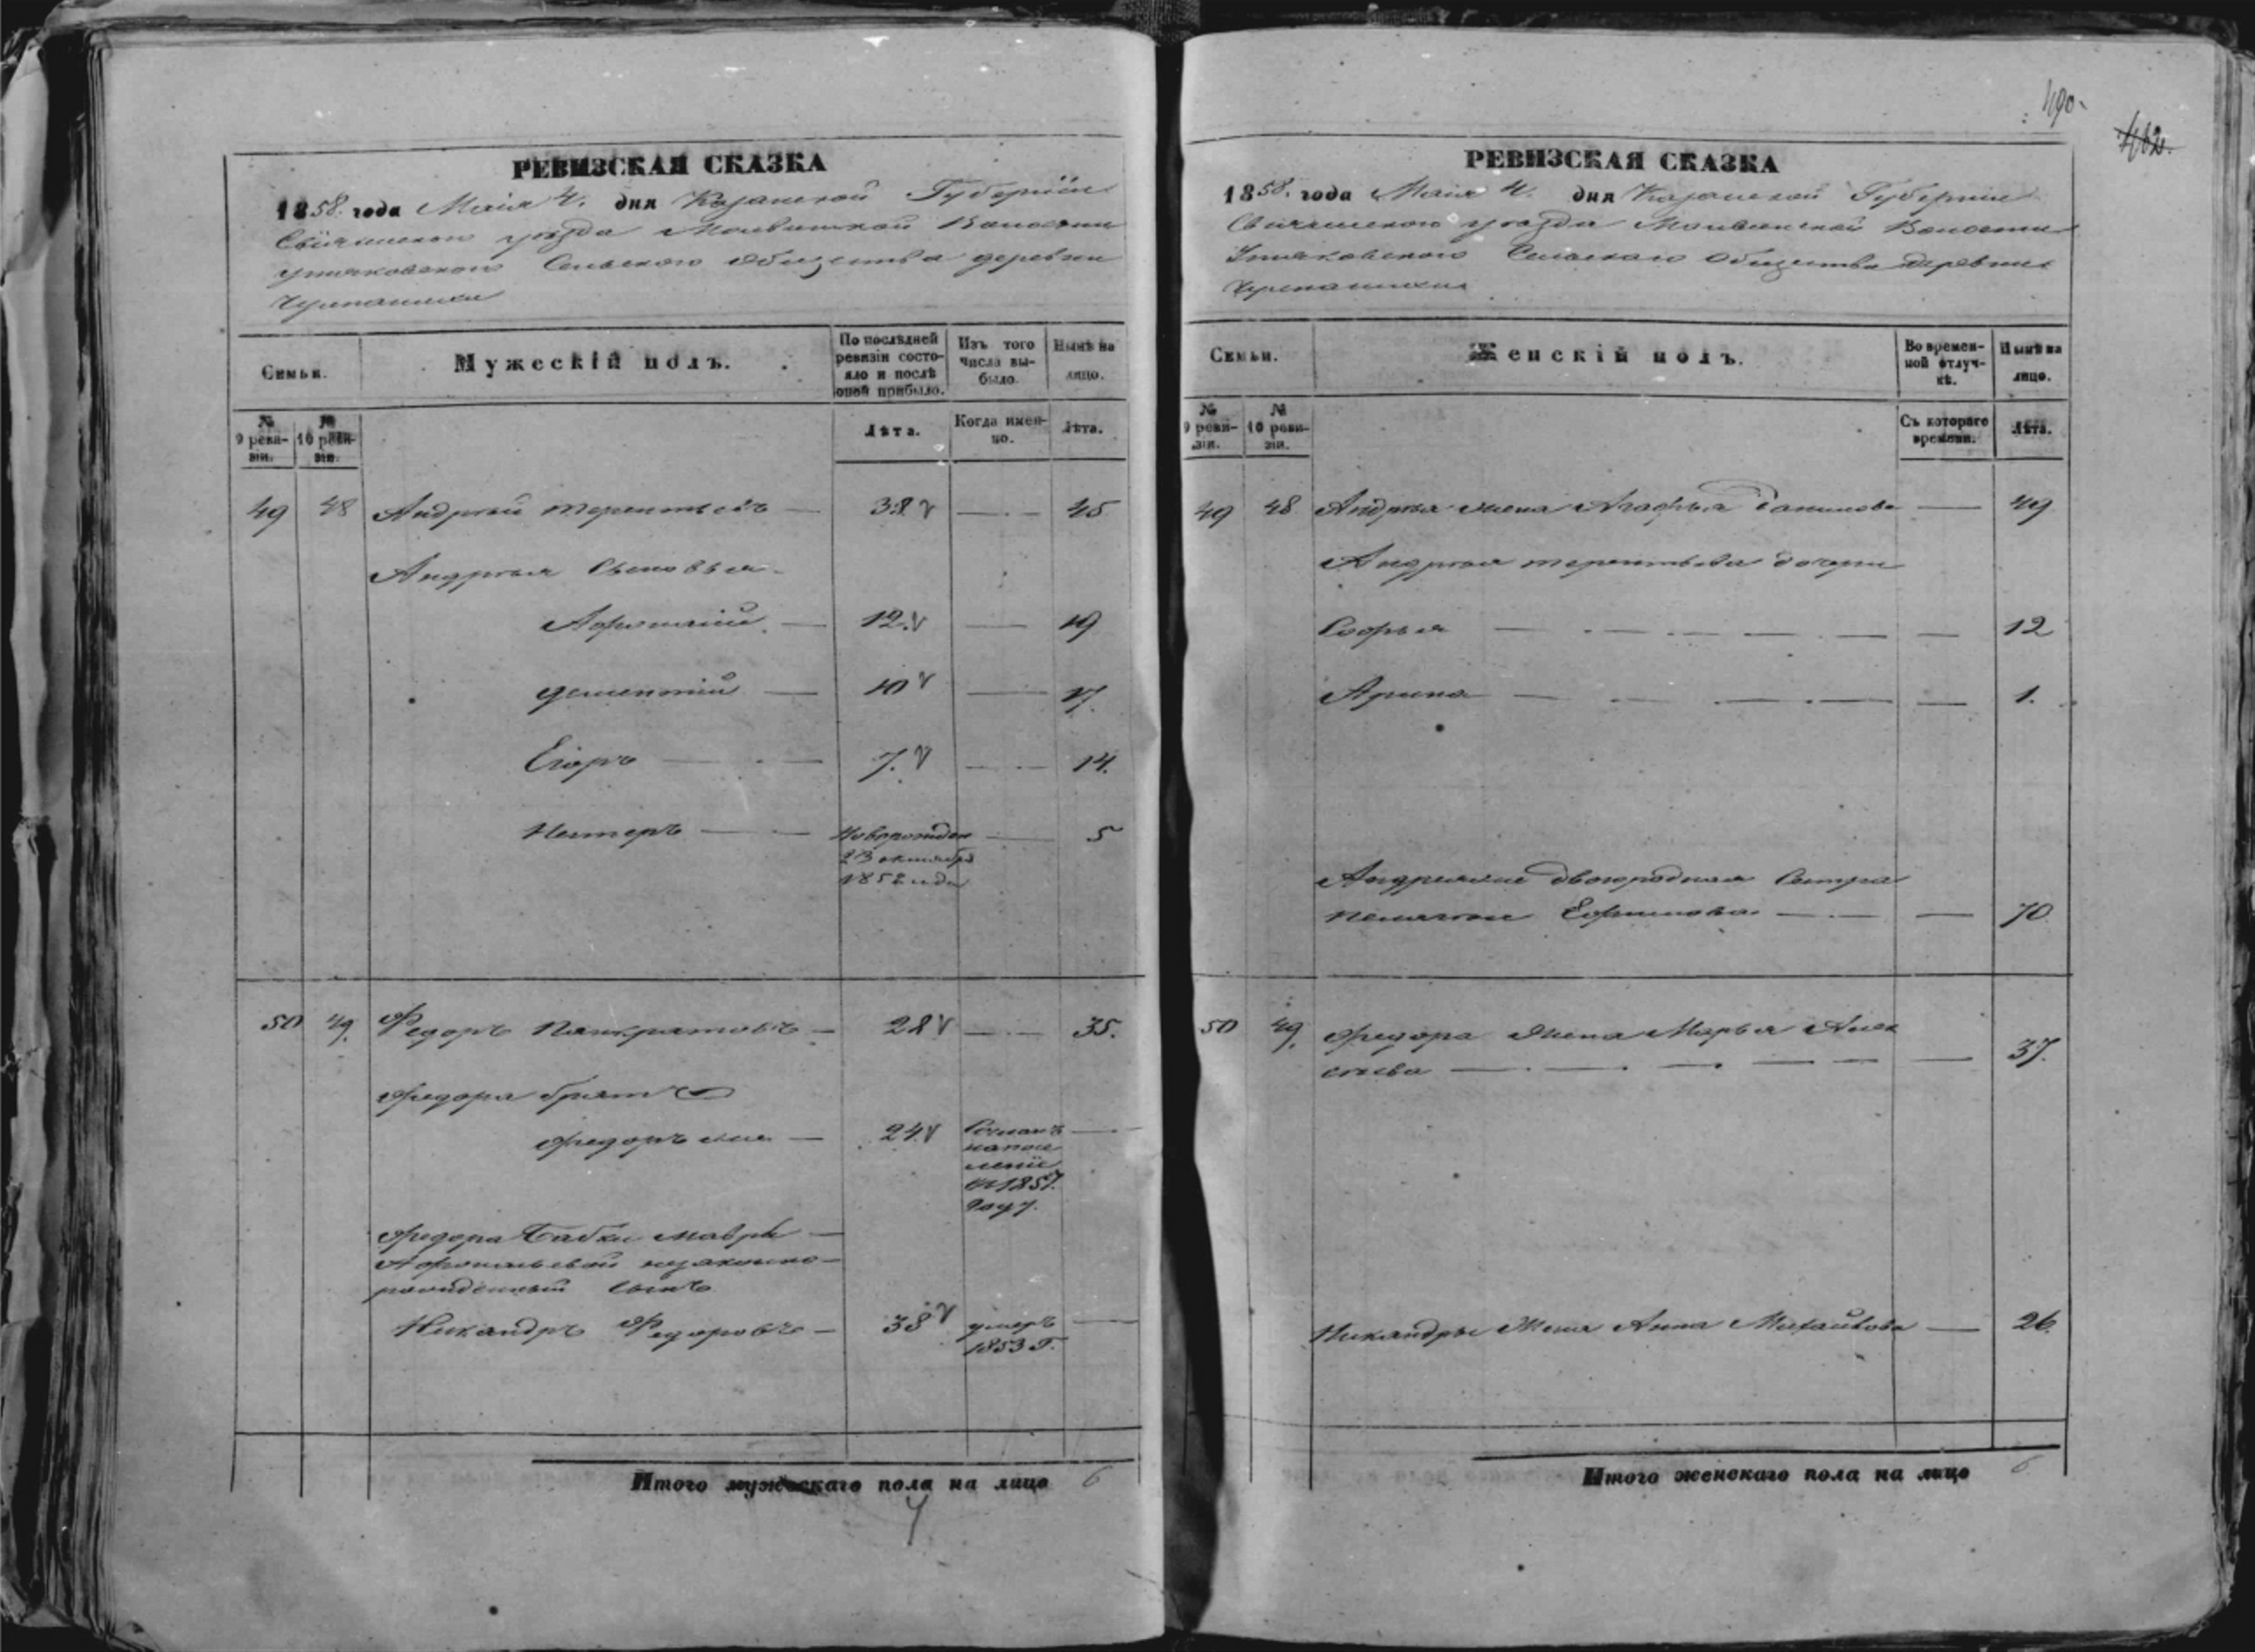 РЕВИЗСКАЯ СКАЗКА
1858. года Маія 4. дня Казанской Губерніи
Свіяжскаго уѣзда Молвинской Волости
Сельскаго Общества деревни
Семьи.
Мужескій полъ.
По послѣдней ревизіи состояло и послѣ оной прибыло.
Изъ того числа выбыло.
Нынѣ на лицо.
№ 9 ревизіи.
№ 10 ревизіи.
Лѣта.
Когда именно.
Лѣта.
49 48 Андрей Терентьевъ — 38 — 45
Андрея Сыновья
— 12. — 19
Дементій — 10 — 17.
Егоръ — 7. — 14.
Нестеръ — Новорожден — 5
23 октября
1852 года
50 49. Федоръ Панкратовъ — 28 — 35.
Федора братъ
Федоръ же — 24. Сосланъ —
на посе
леніе
въ 1857.
году.
Федора Бабки Мавры —
незаконно-
рожденный сынъ
Никандръ Федоровъ — 38 умеръ —
1853 г.
Итого мужескаго пола на лицо 6
490
462.
РЕВИЗСКАЯ СКАЗКА
1858. года Маія 4. дня Казанской Губерніи
Свіяжскаго уѣзда Молвинской Волости
Сельскаго Общества деревни
Семьи.
Женскій полъ.
Во временной отлучкѣ.
Нынѣ на лицо.
№ 9 ревизіи.
№ 10 ревизіи.
Съ котораго времени.
Лѣта.
49 48 Андрея жена Агафья Данилова — 49
Андрея Терентьева дочери
Софья — 12
Арина — 1.
двоюродная Сестра
Ефимова — 70
50 49. Федора Жена Марья Алек
сѣева — 37.
Никандры Жена Анна Михайлова — 26.
Итого женскаго пола на лицо 6